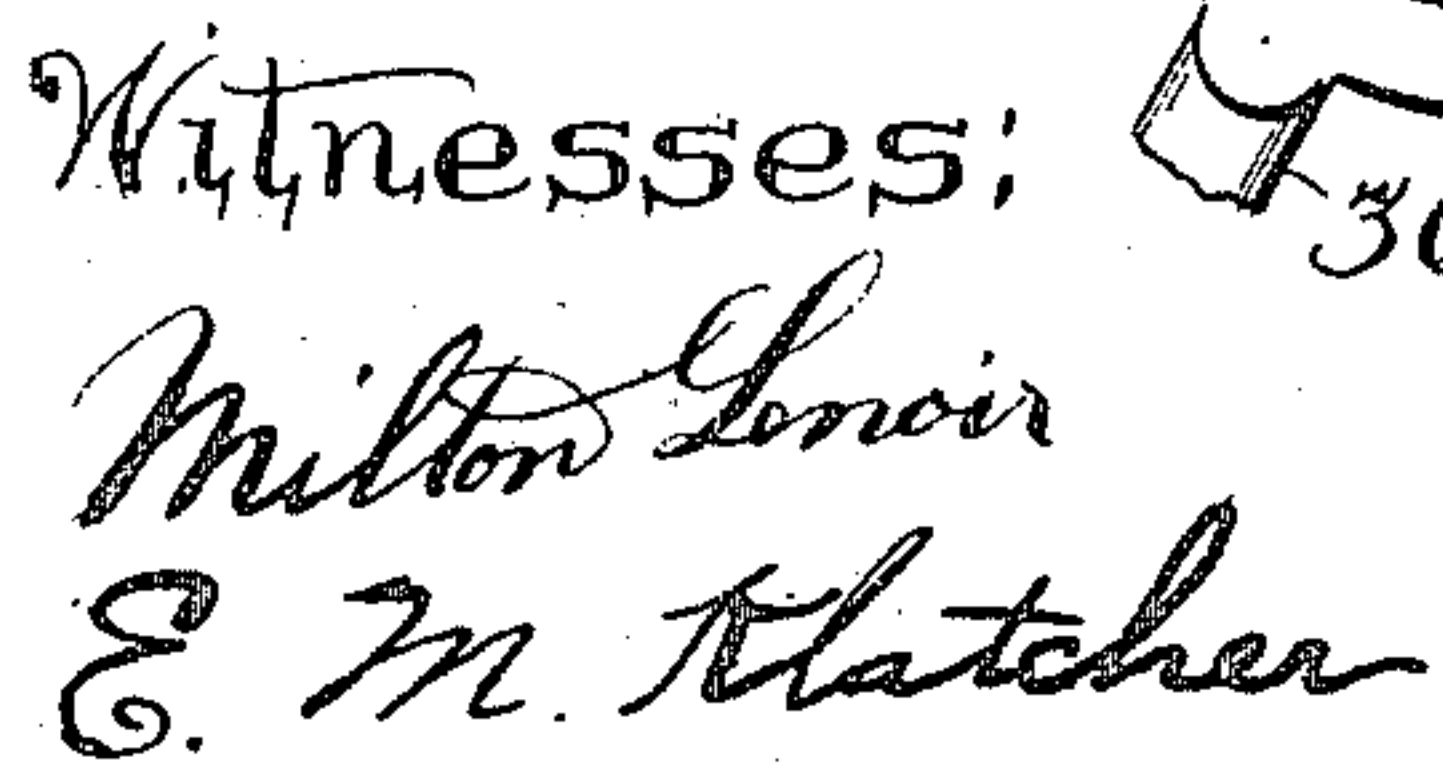 Witnesses:
Milton Lenoir
E. M. Klatcher